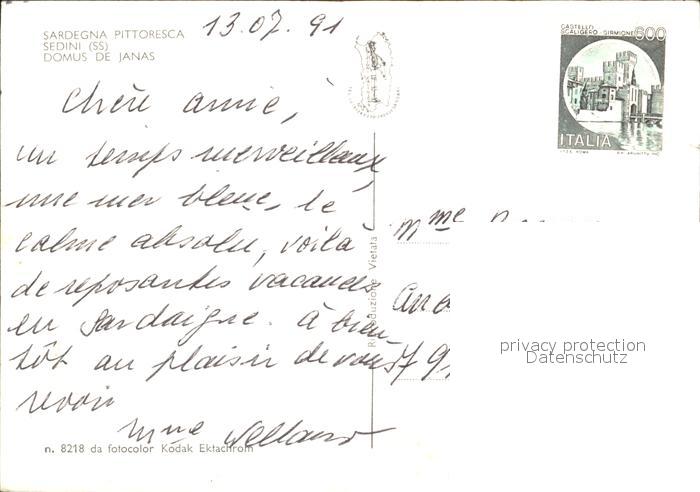 SARDEGNA PITTORESCA
SEDINI (SS)
DOMUS DE JANAS
13.07.91
CASTELLO
SCALIGERO - SIRMIONE
600
ITALIA
Chère amie,
un temps merveilleux,
une mer bleue, le
calme absolu, voilà
de reposantes vacances
en Sardaigne. à bien
tôt au plaisir de vous
revoir
Mme
n. 8218 da fotocolor Kodak Ektachrom
Riproduzione Vietata
Mme
privacy protection
Datenschutz